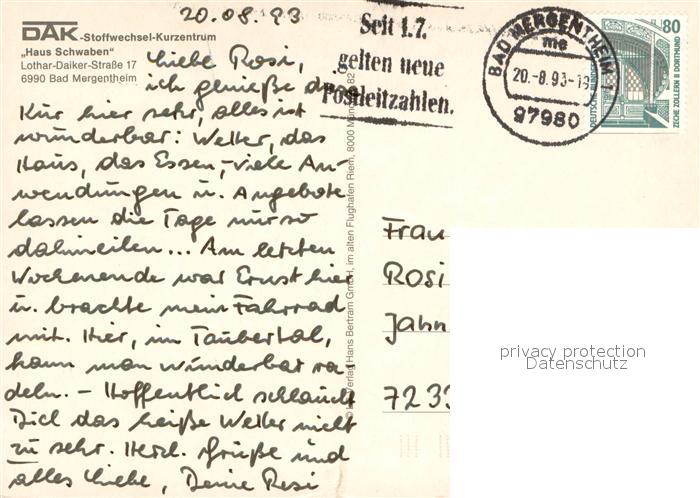 20.08.93
DAK-Stoffwechsel-Kurzentrum
„Haus Schwaben"
Lothar-Daiker-Straße 17
6990 Bad Mergentheim
Seit 1.7.
gelten neue
Postleitzahlen.
BAD MERGENTHEIM 1
me
20.-8.93-
97980
80
DEUTSCHE BUNDESPOST
ZECHE ZOLLERN II DORTMUND
Liebe Rosi,
ich genieße die
Kur hier sehr, alles ist
wunderbar: Wetter, das
Haus, das Essen, viele An-
wendungen u. Angebote
lassen die Tage nur so
dahineilen... Am letzten
Wochenende war Ernst hier
u. brachte mein Fahrrad
mit. Hier, im Taubertal,
kann man wunderbar ra-
deln. – Hoffentlich schlaucht
Dich das heiße Wetter nicht
zu sehr. Herzl. Grüße und
alles Liebe, Deine Resi
Verlag Hans Bertram GmbH, im alten Flughafen Riem, 8000 München 82
Frau
Rosi
Jahn
7233
privacy protection
Datenschutz